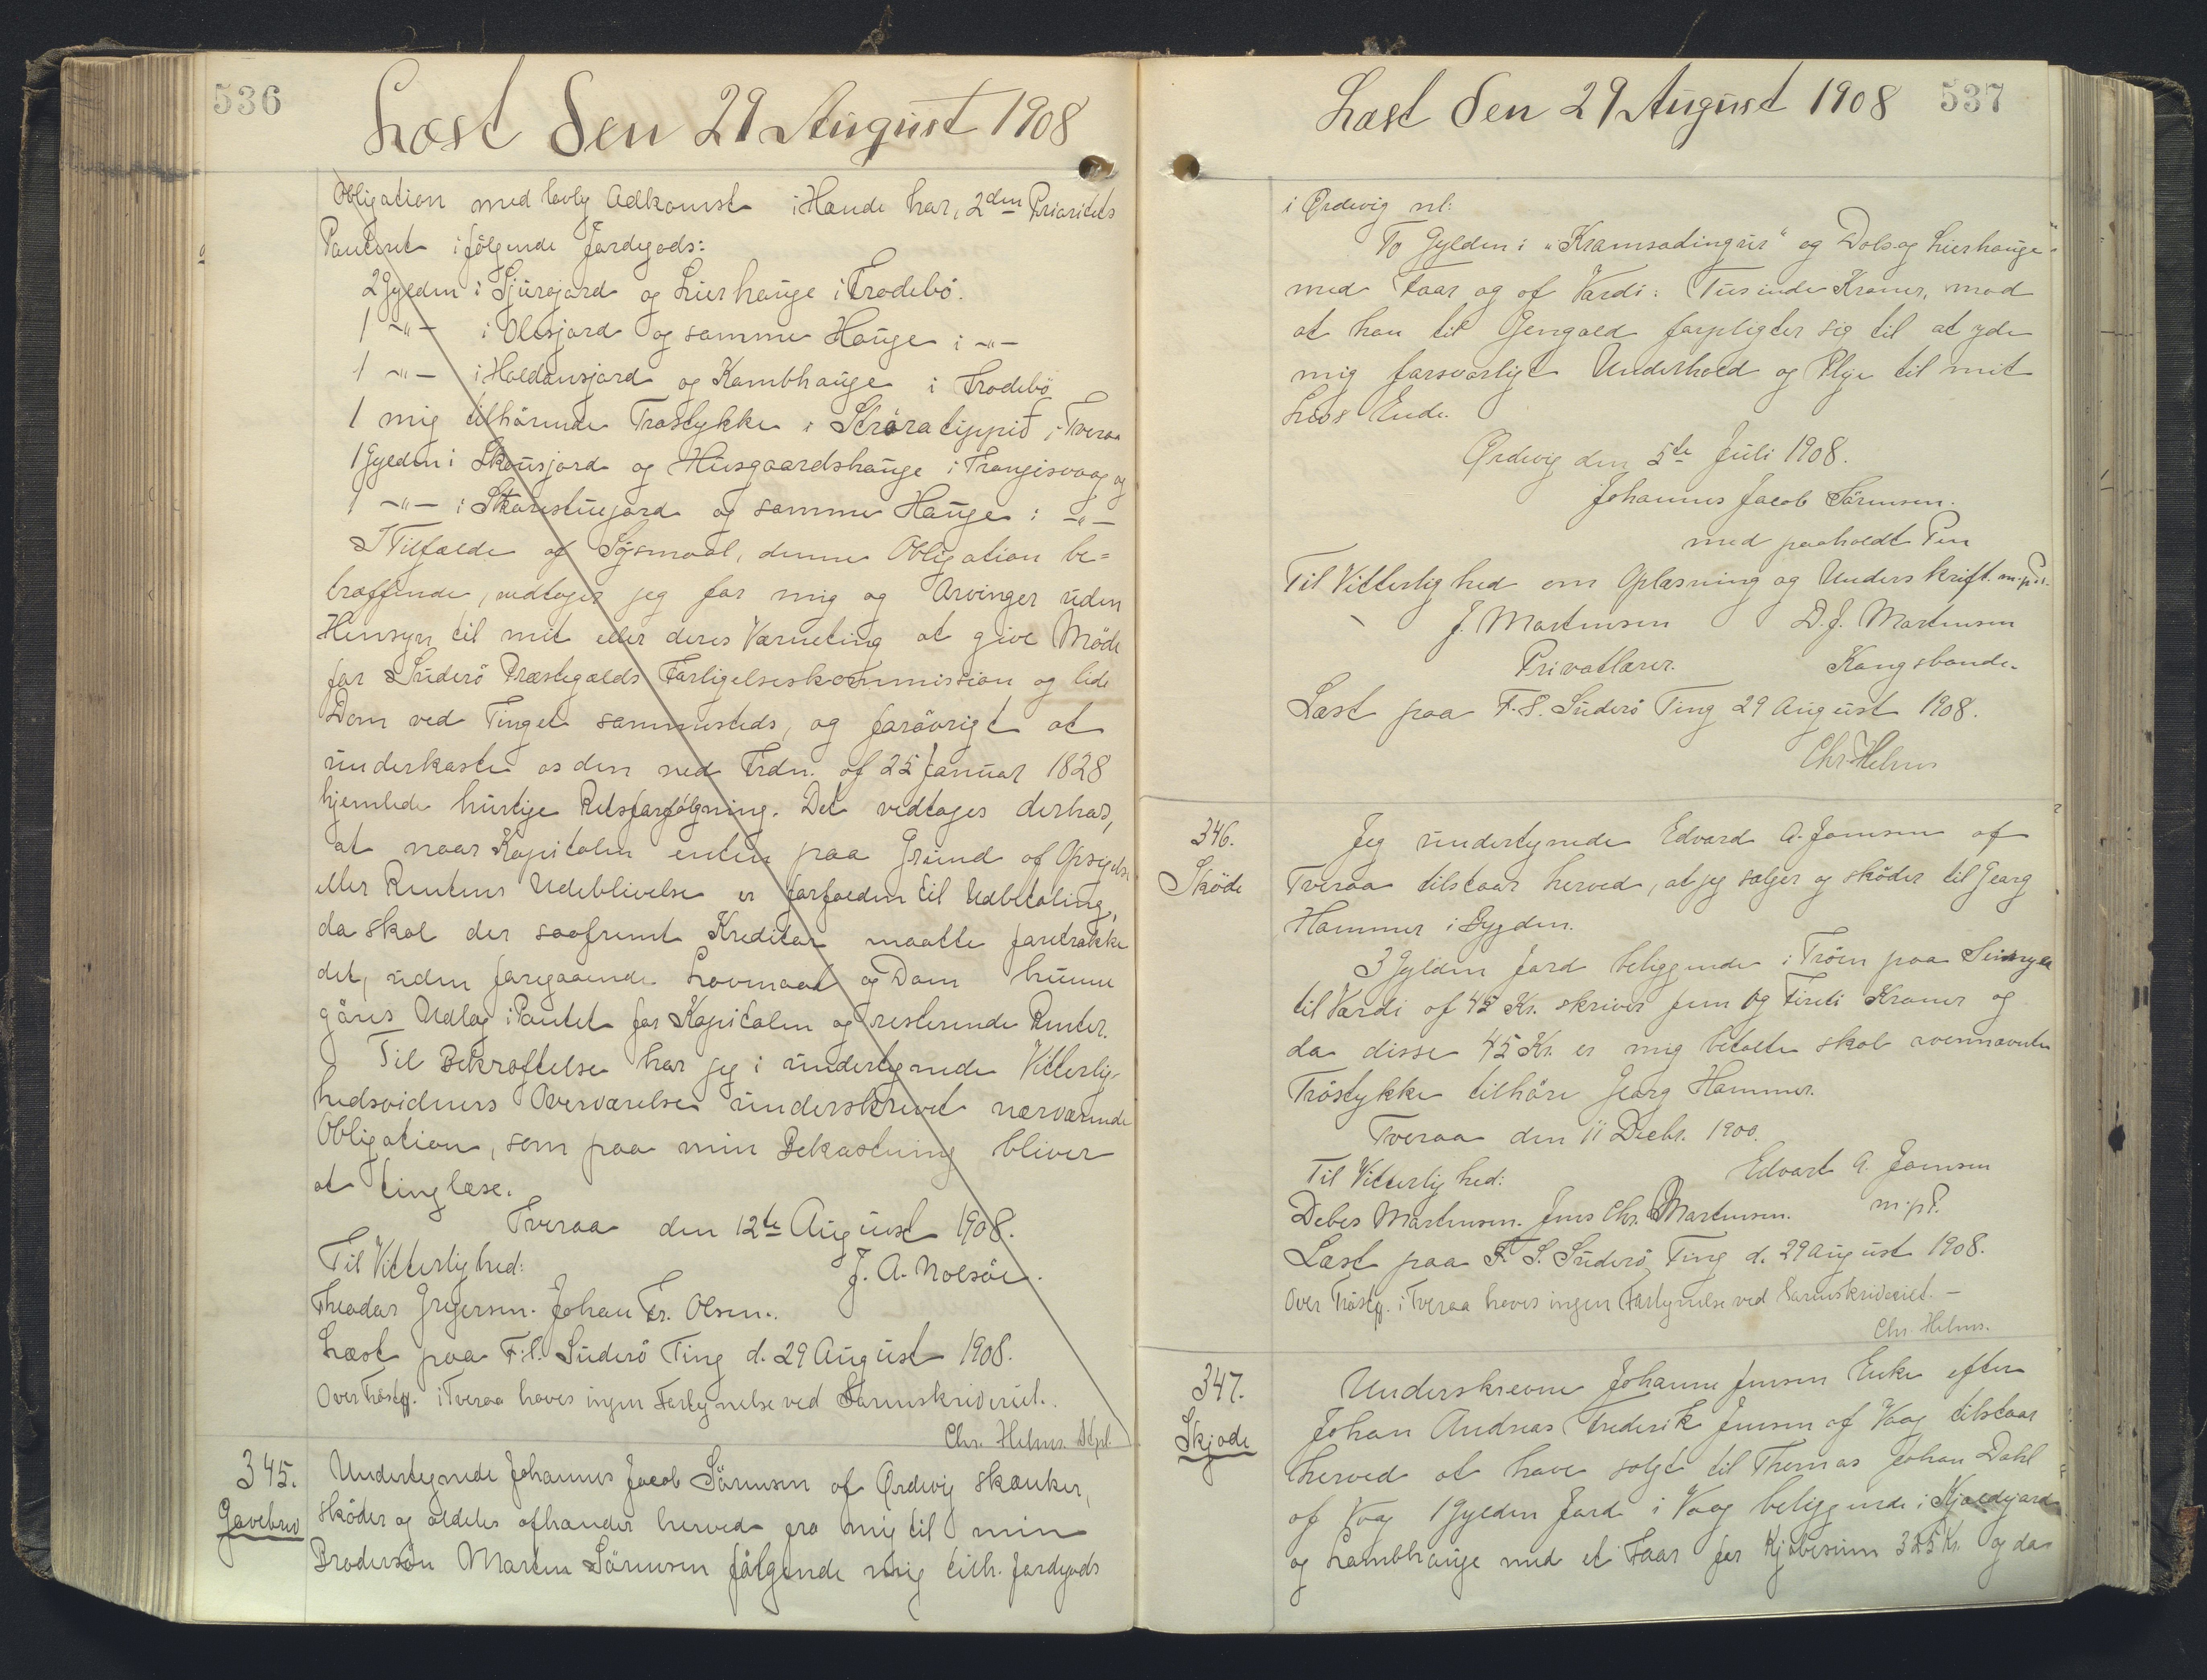 536
Læst den 29 August 1908
Obligation med lovlig Adkomst i Hænde har, 2den Prioritets
Panteret i følgende Jordegods:
2 Gylden i Sjurajord og Lierhauge i Frodebö.
1 -"- i Olesjord og samme Hauge i -"-
1 -"- i Haldansjord og Kambhauge i Frodebö
1 mig tilhörende Trøstykke i Skröratippið i Tveraa
1 Gylden i Skousjord og Husgaardshauge i Trangisvaag og
1 -"- i Skorestuejord og samme Hauge i -"-
I Tilfælde af Sögsmaal, denne Obligation be=
træffende, vedtager jeg for mig og Arvinger uden
Hensyn til mit eller deres Værneting at give Möde
for Suderö Præstegælds Forligelseskommission og lide
Dom ved Tinget sammesteds, og forövrigt at
underkaste os den ved Frdn. af 25 Januar 1828
hjemlede hurtige Retsforfölgning. Det vedtages derhos,
at naar Kapitalen enten paa Grund af Opsigelse
eller Rentens Udeblivelse er forfalden til Udbetaling,
da skal der saafremt Kreditor maatte foretrække
det, uden foregaaende Lovmaal og Dom kunne
göres Udlæg i Pantet for Kapitalen og resterende Renter.
Til Bekræftelse har jeg i undertegnede Vitterlig-
hedsvidners Overværelse underskrevet nærværende
Obligation, som paa min Bekostning bliver
at tinglæse.
Tveraa den 12te August 1908.
Til Vitterlighed: J. A. Nolsöe.
Theodor Gregersen. Johan Fr. Olsen.
Læst paa F. S. Suderö Ting d. 29 August 1908.
Over Tröstg. i Tveraa haves ingen Fortegnelse ved Sorenskriveriet.
Chr. Helms. Kpl.
345.
Gavebrev
Undertegnede Johannes Jacob Sörensen af Ørdevig skænker,
sköder og aldeles afhænder herved fra mig til min
Brodersön Morten Sörensen fölgende mig tilh. Jordegods
Læst den 29 August 1908
537
i Ørdevig nl:
To Gylden i "Kramsadingur" og Dals og Lierhauge"
med Faar og af Værdi: Tusinde Kroner, mod
at han til Gengæld forpligter sig til at yde
mig forsvarligt Underhold og Pleje til mit
Livs Ende.
Ørdevig den 5te Juli 1908.
Johannes Jacob Sörensen.
med paaholdt Pen
Til Vitterlighed om Oplæsning og Underskrift m.p.P.
J. Mortensen D. J. Mortensen
Privatlærer. Kongsbonde.
Læst paa F. S. Suderö Ting 29 August 1908.
Chr. Helms
346.
Sköde
Jeg undertegnede Edvard A. Joensen af
Tveraa tilstaar herved, at jeg sælger og sköder til Georg
Hammer i Bygden.
3 Gylden Jord beliggende i Tröen paa
til Værdi af 45 Kr. skriver fem og Firti Kroner og
da disse 45 Kr. er mig betalte skal ovennævnte
Tröstykke tilhöre Georg Hammer.
Tveraa den 11 Decbr. 1900.
Til Vitterlighed: Edvart A. Joensen
Debes Mortensen. Jens Chr. Mortensen. m.p.P.
Læst paa F. S. Suderö Ting d. 29 August 1908.
Over Tröstg. i Tveraa haves ingen Fortegnelse ved Sorenskriveriet. -
Chr. Helms.
347.
Skjøde
Underskrevne Johanne Jensen Enke efter
Johan Andreas Frederik Jensen af Vaag tilstaar
herved at have solgt til Thomas Johan Dahl
af Vaag 1 Gylden Jord i Vaag beliggende i Kjældejord
og Lambhauge med et Faar for Kjøbesum 325 Kr. og da